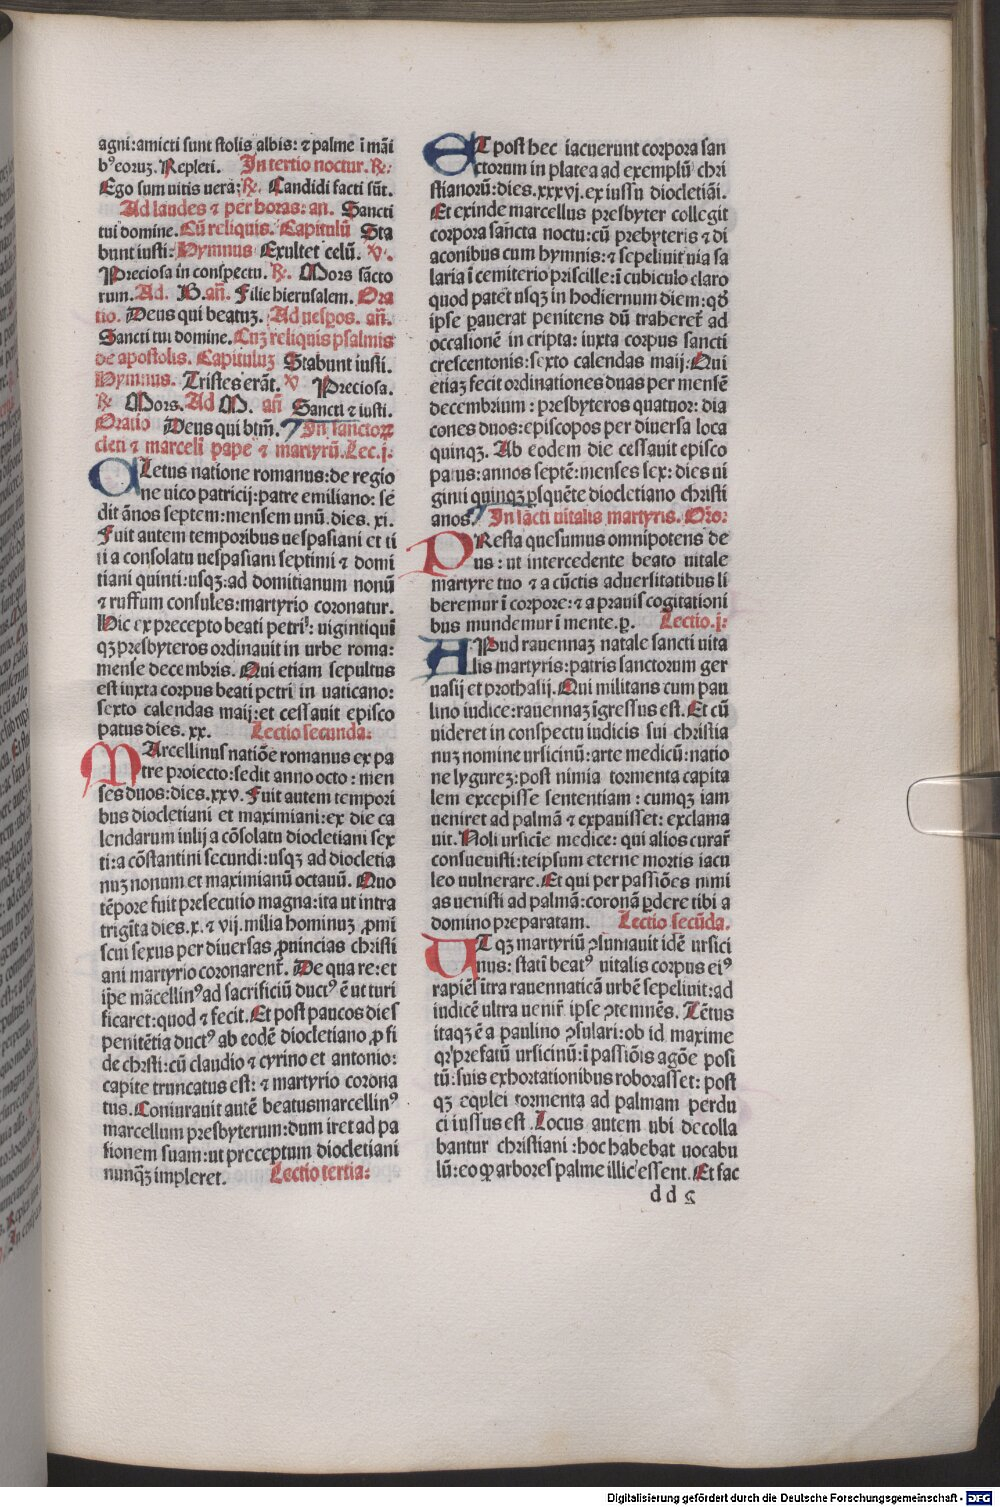 agni:amicti sunt stolis albis: ⁊ palme ī māi
b⁹eoruꝫ. Repleti. In tertio noctur. ℟.
Ego sum uitis uera: ℟. Candidi facti sūt.
Ad laudes ⁊ per horas: an. Sancti
tui domine. Cū reliquis. Capitulū Sta
bunt iusti: Hymnus Exultet celū. ℣.
Preciosa in conspectu. ℟. Mors sācto
rum. Ad. B. añ. Filie hierusalem. Ora
tio. Deus qui beatuꝫ. Ad uesꝑos. añ.
Sancti tui domine. Cuꝫ reliquis psalmis
de apostolis. Capituluꝫ Stabunt iusti.
Hymnus. Tristes erāt. ℣ Preciosa.
℟ Mors. Ad M. añ Sancti ⁊ iusti.
Oratio Deus qui btm̄. In sanctoꝝ
cleti ⁊ marceli pape ⁊ martyrū. Lec. j.
CLetus natione romanus: de regio
ne uico patricij: patre emiliano: se
dit ānos septem: mensem unū. dies. xi.
Fuit autem temporibus uespasiani et ti
ti a consolatu uespasiani septimi ⁊ domi
tiani quinti: usqꝫ: ad domitianum nonū
⁊ ruffum consules: martyrio coronatur.
Hic ex precepto beati petri: uigintiqui
qꝫ presbyteros ordinauit in urbe roma:
mense decembris. Qui etiam sepultus
est iuxta corpus beati petri in uaticano:
sexto calendas maij: et cessauit episco
patus dies. xx. Lectio secunda:
MArcellinus natiōe romanus ex pa
tre proiecto: sedit anno octo: men
ses duos: dies. xxv. Fuit autem tempori
bus diocletiani et maximiani: ex die ca
lendarum iulij a cōsolatu diocletiani sex
ti: a cōstantini secundi: usqꝫ ad diocletia
nuꝫ nonum et maximianū octauū. Quo
tēpore fuit presecutio magna: ita ut intra
trigīta dies. x. ⁊ vij. milia hominuꝫ ꝓmi
scui sexus per diuersas ꝓuincias christi
ani martyrio coronarent̄. De qua re: et
ipe mācellin⁹ ad sacrificiū duct⁹ ē ut turi
ficaret: quod ⁊ fecit. Et post paucos dies
penitētia duct⁹ ab eodē diocletiano ꝓ fi
de chr̄sti: cū claudio ⁊ cyrino et antonio:
capite truncatus est: ⁊ martyrio corona
tus. Coniurauit autē beatusmarcellin⁹
marcellum presbyterum: dum iret ad pa
sionem suam: ut preceptum diocletiani
nunqꝫ impleret. Lectio tertia:
ET post hec iacuerunt corpora san
ctorum in platea ad exemplū chri
stianorū: dies. xxxvj. ex iussu diocletiāi.
Et exinde marcellus presbyter collegit
corpora sancta noctu: cū prebyteris ⁊ di
aconibus cum hymnis: ⁊ sepeliuit uia sa
laria ī cemiterio priscille: ī cubiculo claro
quod patet usqꝫ in hodiernum diem: qđ
ipse ꝑauerat penitens dū traheret̄ ad
occasionē in cripta: iuxta corpus sancti
crescentonis: sexto calendas maij: Qui
etiaꝫ fecit ordinationes duas per mensē
decembrium: presbyteros quatuor: dia
cones duos: episcopos per diuersa loca
quinqꝫ. Ab eodem die cessauit episco
patus: annos septē: menses sex: dies ui
ginti quinqꝫ ꝑsquēte diocletiano christi
anos. In sācti uitalis martyris. Oŕo:
PResta quesumus omnipotens de
us: ut intercedente beato uitale
martyre tuo ⁊ a cūctis aduersitatibus li
beremur ī corpore: ⁊ a prauis cogitationi
bus mundemur ī mente. ꝑ. Lectio. j:
APud rauennaꝫ natale sancti uita
lis martyris: patris sanctorum ger
uasij et prothasij. Qui militans cum pau
lino iudice: rauennaꝫ īgressus est. Et cū
uideret in conspectu iudicis sui christia
nuꝫ nomine ursicinū: arte medicū: natio
ne lygureꝫ: post nimia tormenta capita
lem excepisse sententiam: cumqꝫ iam
ueniret ad palmā ⁊ expauisset: exclama
uit. Noli ursicīe medice: qui alios curar̄
consueuisti: teipsum eterne mortis iacu
leo uulnerare. Et qui per passiōes nimi
as uenisti ad palmā: coronā ꝑdere tibi a
domino preparatam. Lectio secūda.
UT qꝫ martyriū ꝯsumauit idē ursici
nus: statī beat⁹ uitalis corpus ei⁹
rapiēs ītra rauennaticā urbē sepeliuit: ad
iudicē ultra uenir̄ ipse ꝯtemnēs. Tētus
itaqꝫ ē a paulino ꝯsulari: ob id maxime
qr̄ prefatū ursicinū: ī passiōis agōe posi
tū: suis exhortationibus roborasset: post
qꝫ equlei tormenta ad palmam perdu
ci iussus est. Locus autem ubi decolla
bantur christiani: hoc habebat uocabu
lū: eo ꝙ arbores palme illic essent. Et fac
d d 5
Digitalisierung gefördert durch die Deutsche Forschungsgemeinschaft - DFG